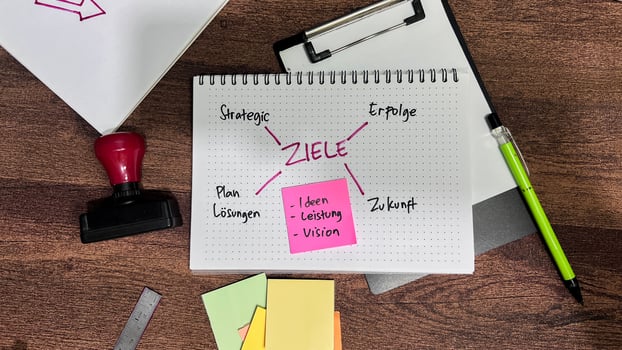 Strategic
Erfolge
ZIELE
Plan
Lösungen
- Ideen
- Leistung
- Vision
Zukunft